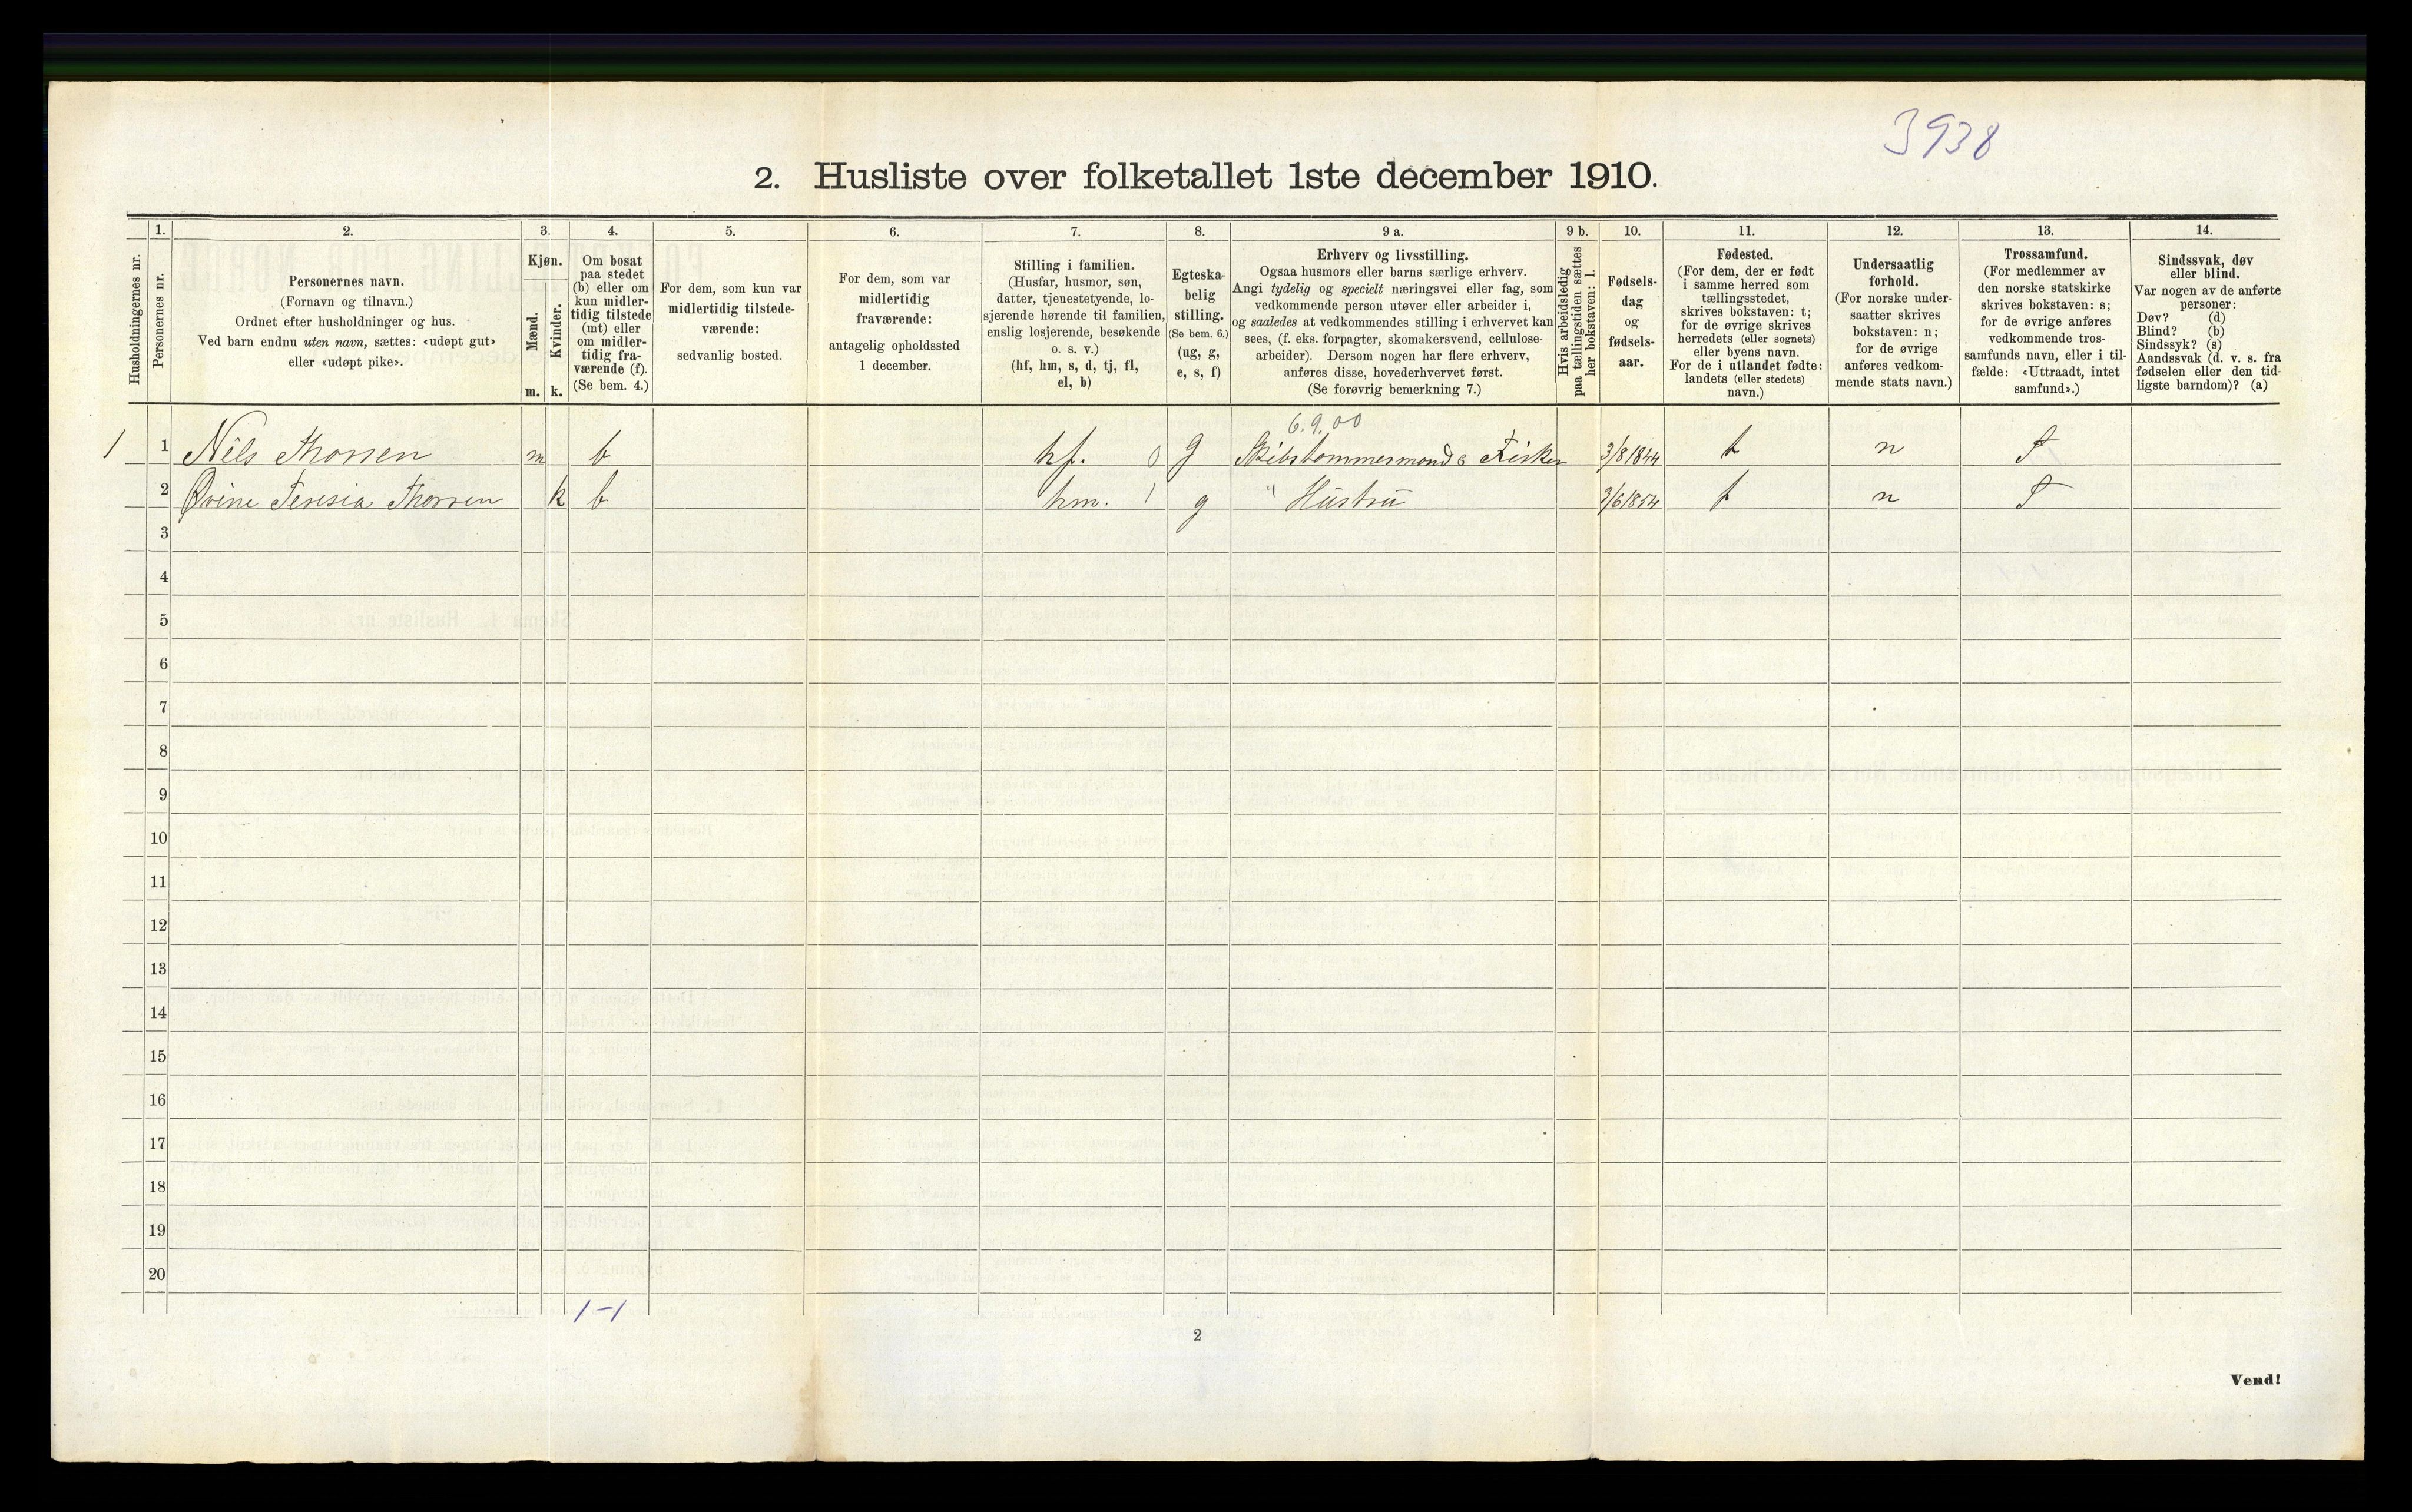 3938
2. Husliste over folketallet 1ste december 1910.
Husholdningernes nr.
1.
Personernes nr.
2.
Personernes navn.
(Fornavn og tilnavn.)
Ordnet efter husholdninger og hus.
Ved barn endnu uten navn, sættes: «udøpt gut»
eller «udøpt pike».
3.
Kjøn.
Mænd.
Kvinder.
m. k.
4.
Om bosat
paa stedet
(b) eller om
kun midler-
tidig tilstede
(mt) eller
om midler-
tidig fra-
værende (f).
(Se bem. 4.)
5.
For dem, som kun var
midlertidig tilstede-
værende:
sedvanlig bosted.
6.
For dem, som var
midlertidig
fraværende:
antagelig opholdssted
1 december.
7.
Stilling i familien.
(Husfar, husmor, søn,
datter, tjenestetyende, lo-
sjerende hørende til familien,
enslig losjerende, besøkende
o. s. v.)
(hf, hm, s, d, tj, fl,
el, b)
8.
Egteska-
belig
stilling.
(Se bem. 6.)
(ug, g,
e, s, f)
9 a.
Erhverv og livsstilling.
Ogsaa husmors eller barns særlige erhverv.
Angi tydelig og specielt næringsvei eller fag, som
vedkommende person utøver eller arbeider i,
og saaledes at vedkommendes stilling i erhvervet kan
sees, (f. eks. forpagter, skomakersvend, cellulose-
arbeider). Dersom nogen har flere erhverv,
anføres disse, hovederhvervet først.
(Se forøvrig bemerkning 7.)
9 b.
Hvis arbeidsledig
paa tællingstiden sættes
her bokstaven: l.
10.
Fødsels-
dag
og
fødsels-
aar.
11.
Fødested.
(For dem, der er født
i samme herred som
tællingsstedet,
skrives bokstaven: t;
for de øvrige skrives
herredets (eller sognets)
eller byens navn.
For de i utlandet fødte:
landets (eller stedets)
navn.)
12.
Undersaatlig
forhold.
(For norske under-
saatter skrives
bokstaven: n;
for de øvrige
anføres vedkom-
mende stats navn.)
13.
Trossamfund.
(For medlemmer av
den norske statskirke
skrives bokstaven: s;
for de øvrige anføres
vedkommende tros-
samfunds navn, eller i til-
fælde: «Uttraadt, intet
samfund».)
14.
Sindssvak, døv
eller blind.
Var nogen av de anførte
personer:
Døv? (d)
Blind? (b)
Sindssyk? (s)
Aandssvak (d. v. s. fra
fødselen eller den tid-
ligste barndom)? (a)
6.9.00
1 1 Nils Thorsen m b hf. 0 g Skibstømmermand & Fisker 3/8 1844 t n
2 Teresia Thorsen k b hm. 1 g " Hustru 3/6 1854 t n
3
4
5
6
7
8
9
10
11
12
13
14
15
16
17
18
19
20
1-1
2
Vend!